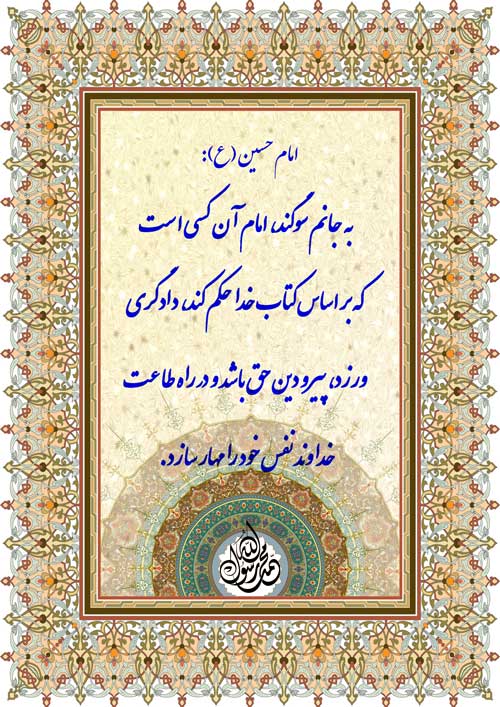 امام حسین (ع):
به جانم سوگند، امام آن کسی است
که بر اساس کتاب خدا حکم کند، دادگری
ورزد، پیرو دین حق باشد و در راه طاعت
خداوند نفس خود را مهار سازد.
محمد رسول الله